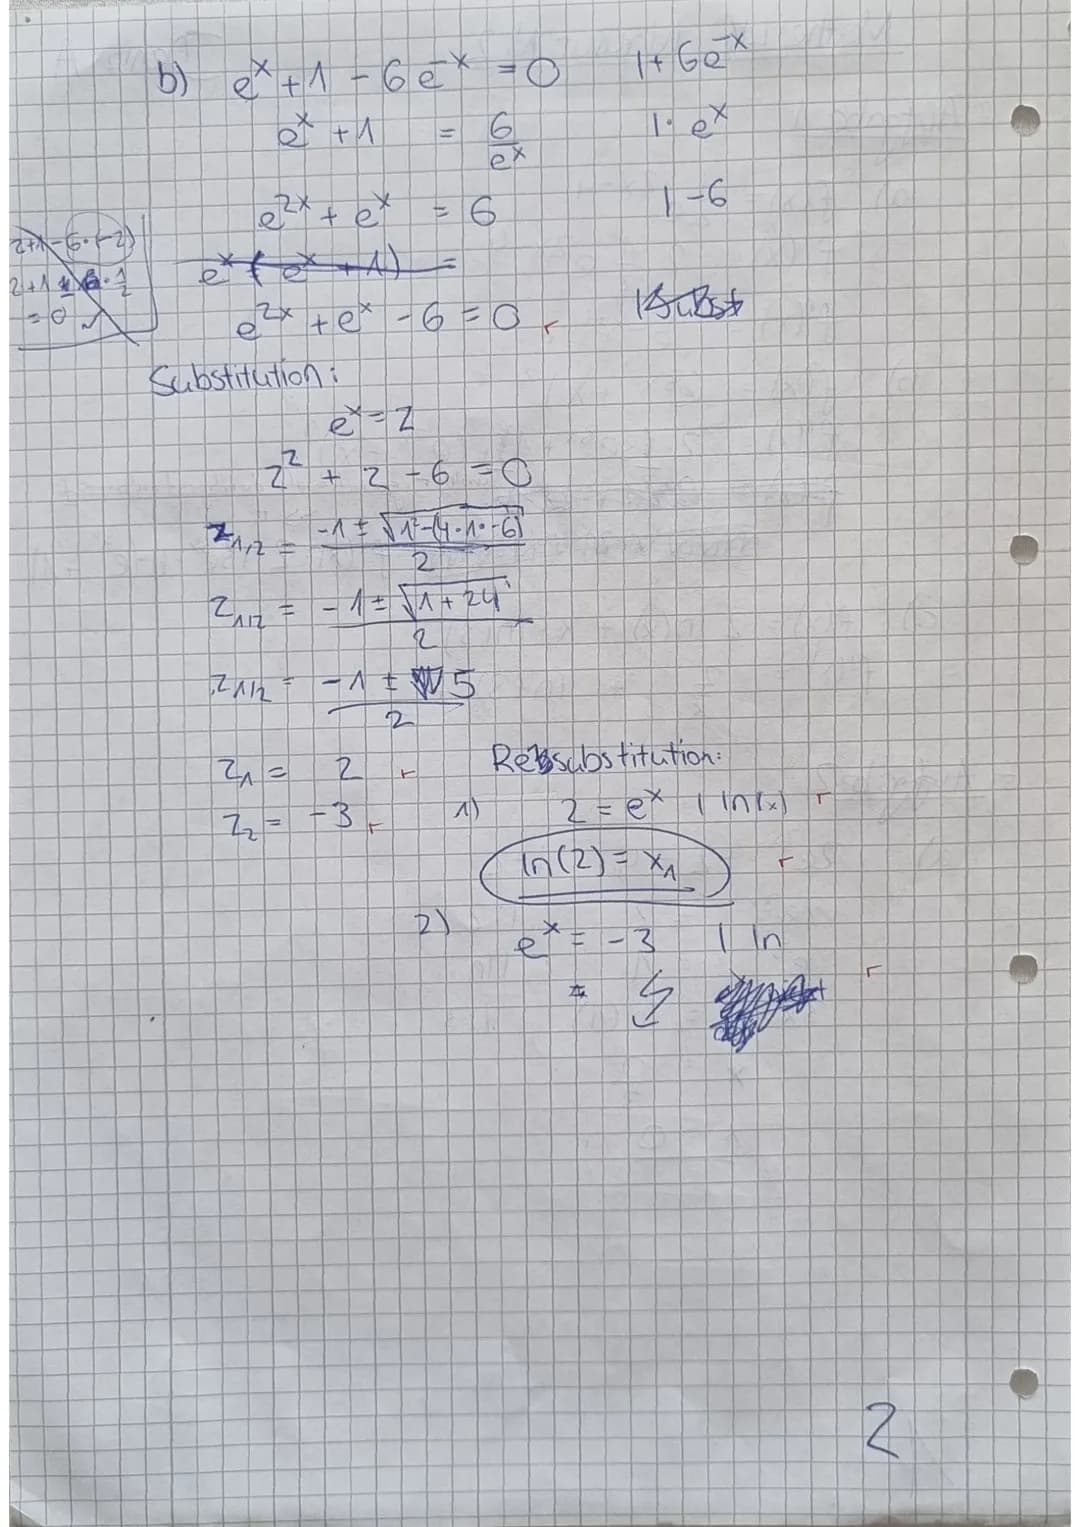 b) e^x + 1 - 6e^-x = 0 | + 6e^-x
e^x + 1 = 6/e^x | · e^x
e^2x + e^x = 6 | - 6
2+1-6·(-2)
2+1 - 6·1/2
= 0 ✓
e^x ( e^x + 1 ) =
e^2x + e^x - 6 = 0 r | Subst
Substitution:
e^x = z
z^2 + z - 6 = 0
z1,2 = (-1 ± √(1^2-(4·1·-6)))/2
z1/2 = (-1 ± √(1+24))/2
z1/2 = (-1 ± 5)/2
z1 = 2 r
z2 = -3 r
Resubstitution:
1) 2 = e^x | ln(x) r
ln(2) = x1 r
2) e^x = -3 | ln r
= ↯
2